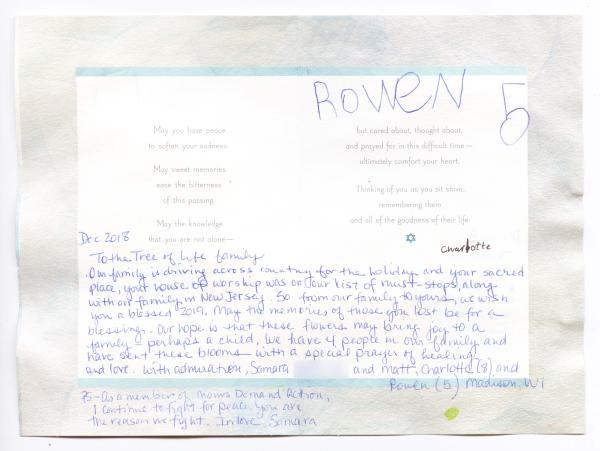 Rowen 5
May you have peace
to soften your sadness.
May sweet memories
ease the bitterness
of this passing.
May the knowledge
that you are not alone—
but cared about, thought about,
and prayed for in this difficult time—
ultimately comfort your heart.
Thinking of you as you sit shiva,
remembering them
and all of the goodness of their life.
Charlotte
Dec 2018
To the Tree of Life family
Our family is driving across country for the holiday and your sacred
place, your house of worship was on our list of must-stops, along
with our family in New Jersey. So from our family to yours, we wish
you a blessed 2019. May the memories of those you lost be for a
blessing. Our hope is that these flowers may bring joy to a
family - perhaps a child. We have 4 people in our family and
have sent these blooms with a special prayer of healing
and love. With admiration, Samara and Matt, Charlotte (8) and
Rowen (5) Madison, WI
PS - As a member of Moms Demand Action,
I continue to fight for peace. You are
the reason we fight. In love, Samara